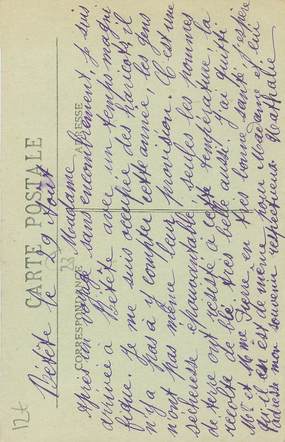 CARTE POSTALE
CORRESPONDANCE
ADRESSE
Bétête le 29 Août
Madame
Après un voyage sans encombrement, je suis
arrivée à Bétête avec un temps magni
fique. Je me suis occupée des haricots, il
n'y a pas à y compter cette année, les gens
n'ont pas même leur provision. C'est une
sécheresse épouvantable seules les pommes
de terre ont résisté à cette température la
récolte de blé très belle aussi. J'ai quitté
Mr et Mme en très bonne santé j'espère
qu'il en est de même pour Madame et lui
adresse mon souvenir respectueux. Nathalie
12t